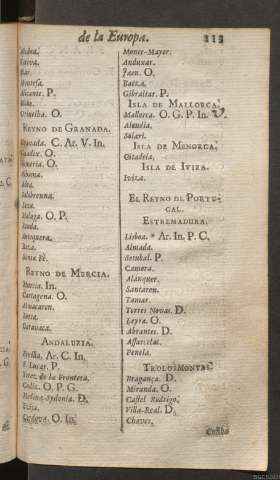 de la Europa. 113
Denia.
Gaeta.
Xativa.
Alicante. P.
Elche.
Orihuella. O.
REYNO DE GRANADA.
Granada. C. Ar. V. In.
Guadix. O.
Almeria. O.
Alhama.
Salobrenna.
Loxa.
Malaga. O. P.
Ronda.
Antequera.
Baza.
Santa Fè.
REYNO DE MURCIA.
Murcia. In.
Cartagena. O.
Almacaron.
Lorca.
Caravaca.
ANDALUZIA.
Sevilla. Ar. C. In.
S. Lucar. P.
Xerez de la Frontera.
Cadiz. O. P. G.
Medina-Sydonia. D.
Ezija.
Cordova. O. In.
Montemayor.
Anduxar.
Jaen. O.
Baeza.
Gibraltar. P.
ISLA DE MALLORCA.
Mallorca. O. G. P. In. V.
Alcudia.
Solari.
ISLA DE MENORCA.
Citadela.
ISLA DE IVIZA.
Iviza.
EL REYNO DE PORTU-
GAL.
ESTREMADURA.
Lisboa. * Ar. In. P. C.
Almada.
Setubal. P.
Camora.
Alanquer.
Santaren.
Tamar.
Torres Novas. D.
Leyra. O.
Abrantes. D.
Assarcelas.
Penela.
TRALOSMONTES.
Bragança. D.
Miranda. O.
Castel Rodrigo.
Villa-Real. D.
Chaves.